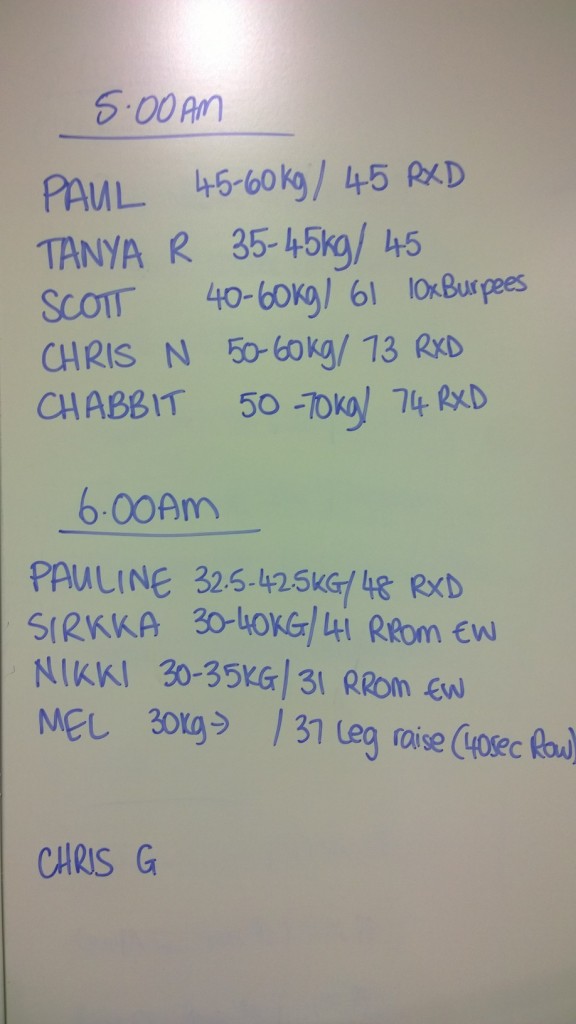 5.00AM
PAUL 45-60kg/ 45 RXD
TANYA R 35-45kg/ 45
SCOTT 40-60kg/ 61 10xBurpees
CHRIS N 50-60kg/ 73 RXD
CHABBIT 50-70kg/ 74 RXD
6.00AM
PAULINE 32.5-42.5KG/48 RXD
SIRKKA 30-40KG/41 RROM EW
NIKKI 30-35KG/31 RROM EW
MEL 30kg→ /37 Leg raise (40sec Row)
CHRIS G